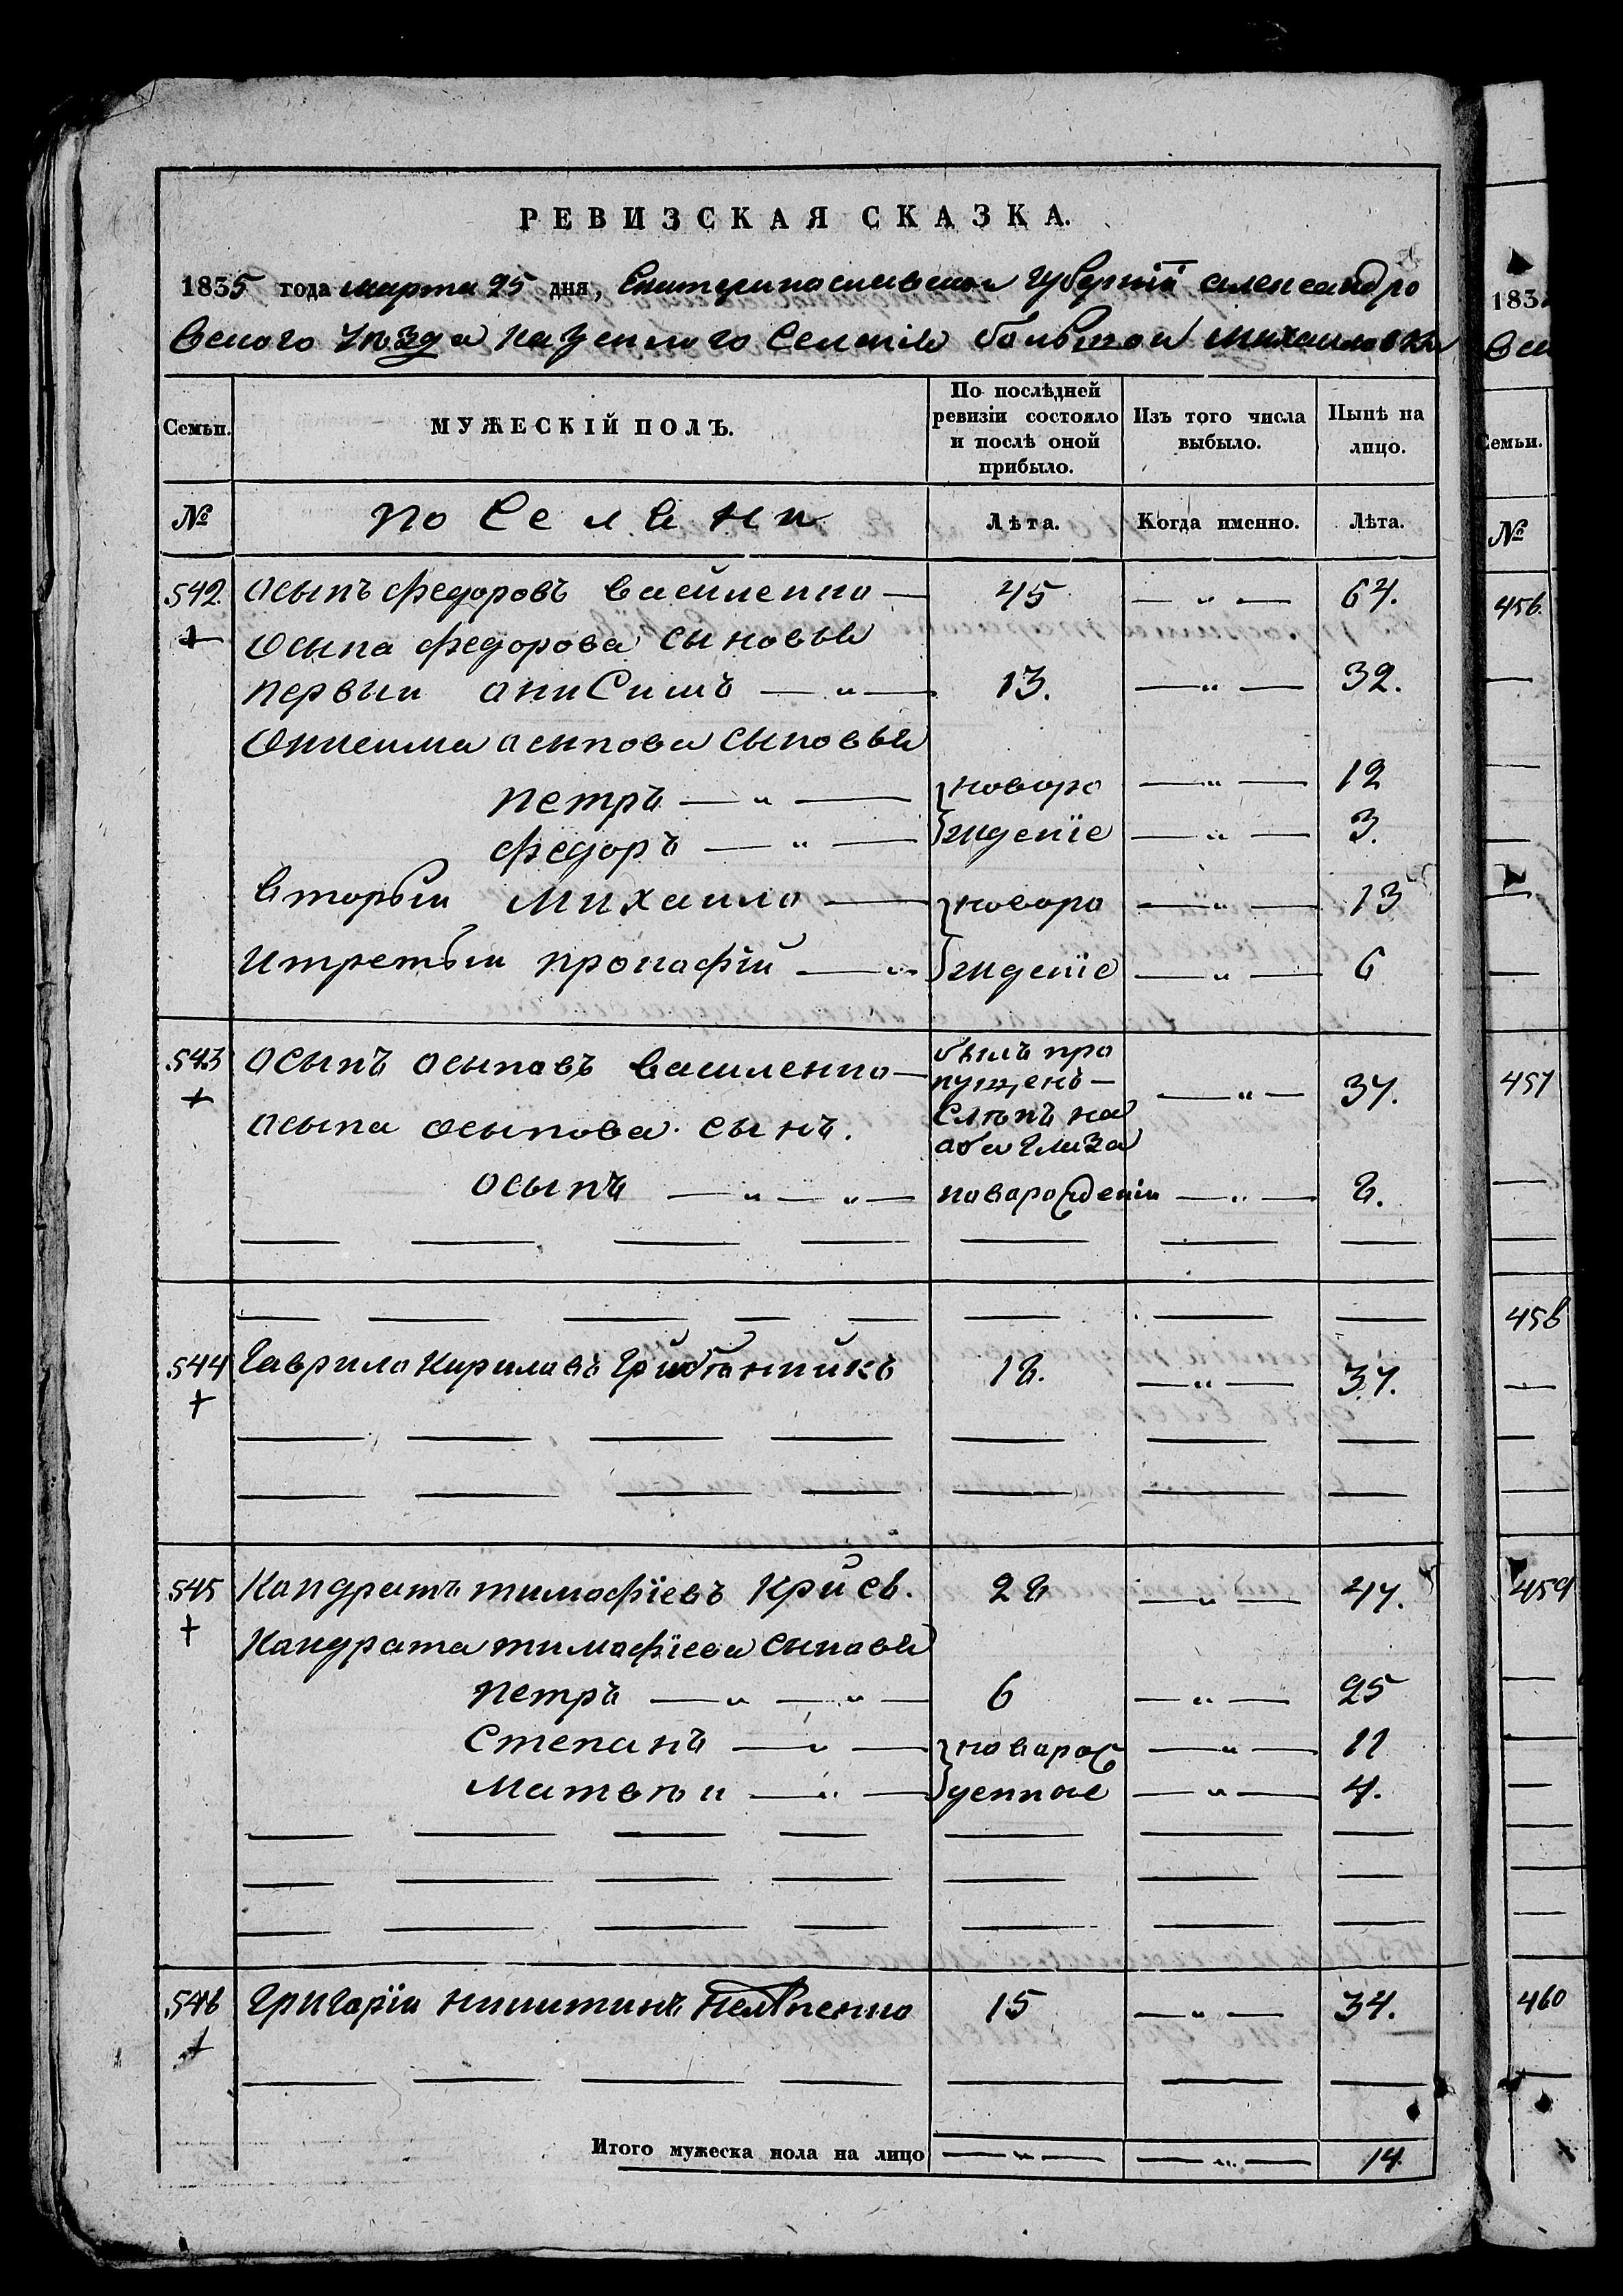 РЕВИЗСКАЯ СКАЗКА.
1835 года марта 25 дня, Екатеринославской губернïи александро
вского уѣзда казенного Селенïя большой михаиловки
Семьи.
МУЖЕСКІЙ ПОЛЪ.
По послѣдней ревизіи состояло и послѣ оной прибыло.
Изъ того числа выбыло.
Нынѣ на лицо.
№
поселяни
Лѣта.
Когда именно.
Лѣта.
542. осыпъ федоровъ василенко — 45 — „ — 64.
осыпа федорова сыновья
первыи анисимъ — „ — 13. — „ — 32.
Онисима осипова сыновья
петръ — „ — новоро — „ — 12
федоръ — „ — жденïе — „ — 3.
вторыи михаило — новоро — „ — 13
итретьи прокофïй — „ жденïе — „ — 6
543 осыпъ осыповъ василенко — былъ про
пущенъ —
слѣпъ на
оба глаза — „ — 37.
осыпа осыпова сынъ.
осыпъ — „ — „ — новорожденïи — „ — 8.
544 гаврило кириловъ 18. — „ — 37.
545 Кандратъ тимофïевъ 28 — „ — 47.
Кандрата тимофïева сыновя
петръ — „ — „ — 6 — „ — 25
степанъ — „ — новорож — „ — 11
матвѣи — „ — денное — „ — 4.
546 григорïи никитинъ 15 — „ — 34.
Итого мужеска пола на лицо — „ — — „ — 14
183
Семьи.
№
456
457
458
459
460